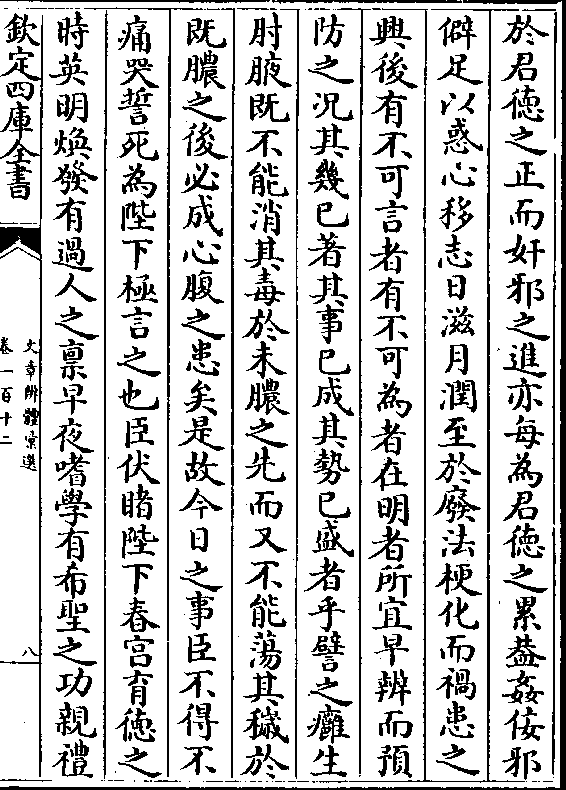 於君德之正而奸邪之進亦每為君德之累葢姦佞邪
僻足以惑心移志日滋月潤至於廢法梗化而禍患之
興後有不可言者有不可為者在明者所宜早辨而預
防之况其幾已著其事已成其勢已盛者乎譬之癰生
肘腋既不能消其毒於未膿之先而又不能蕩其穢於
既膿之後必成心腹之患矣是故今日之事臣不得不
痛哭誓死為陛下極言之也臣伏睹陛下春宫育德之
時英明焕發有過人之禀早夜嗜學有希聖之功親禮
欽定四庫全書
文章辨體彚選
卷一百十二
八